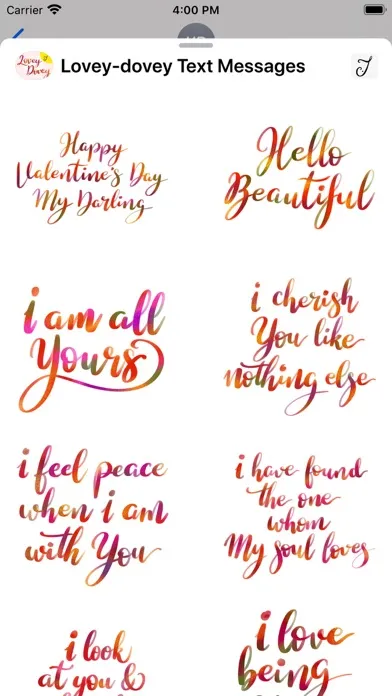 Carrier 4:00 PM
Lovey Dovey Lovey-dovey Text Messages
Happy
Valentine's Day
My Darling
Hello
Beautiful
i am all
Yours
i cherish
You like
nothing else
i feel peace
when i am
with You
i have found
the one
whom
My soul loves
i look
at you &
i love
being